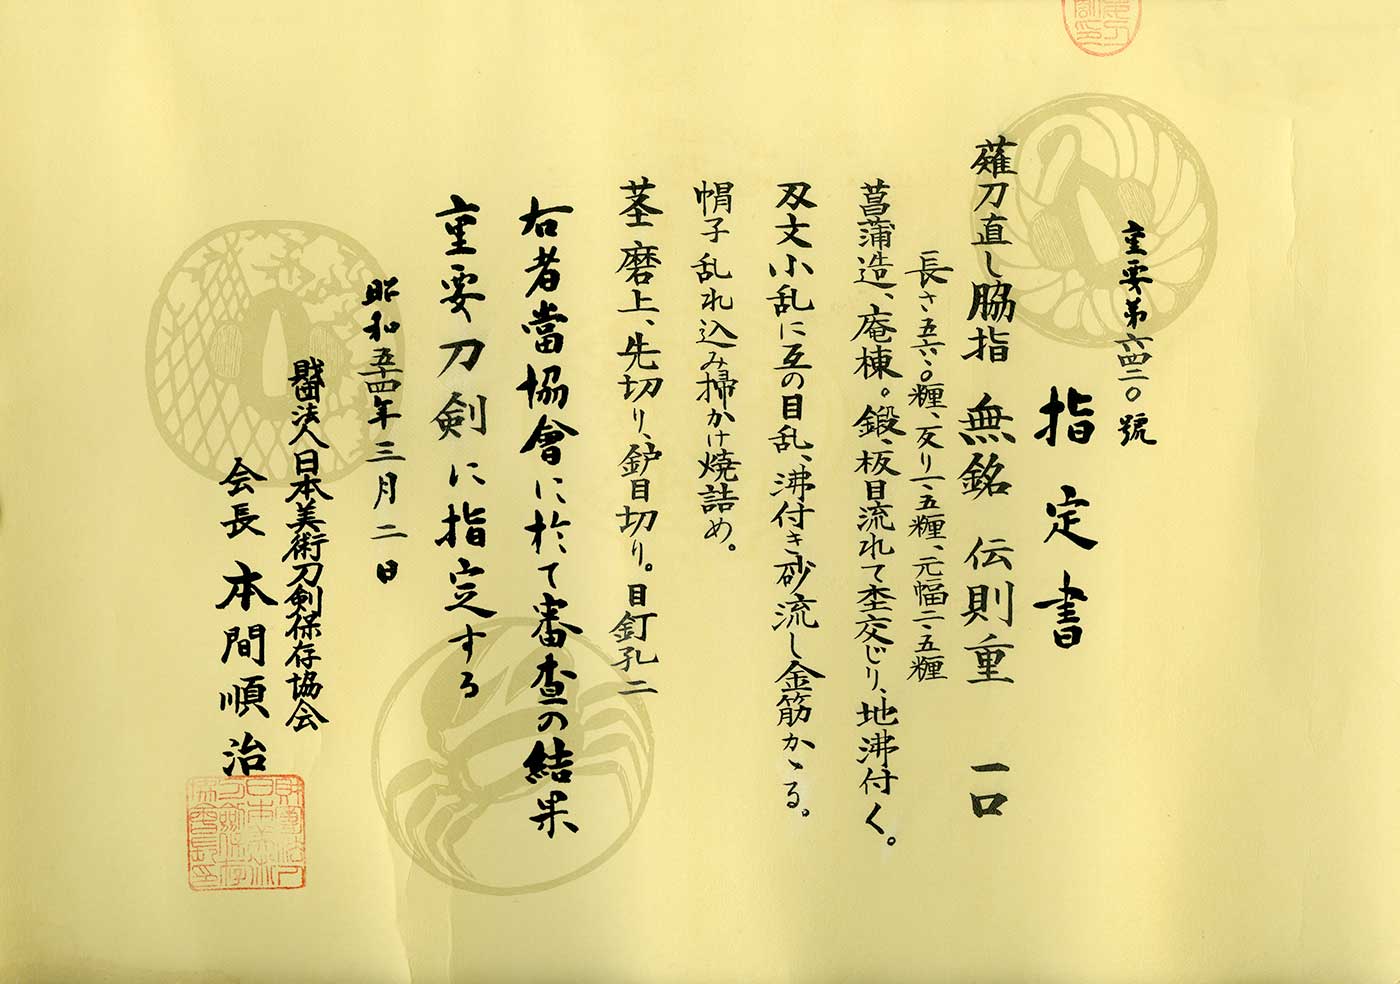 重要第六四二〇號
指定書
薙刀直し脇指 無銘 伝則重 一口
長さ五六・〇糎、反り一・五糎、元幅二・五糎
菖蒲造、庵棟。鍛、板目流れて杢交じり、地沸付く。
刄文小乱に互の目乱、沸付き砂流し金筋かゝる。
帽子乱れ込み掃かけ焼詰め。
茎磨上、先切り、鈩目切り。目釘孔二
右者當協會に於て審査の結果
重要刀剣に指定する
昭和五十四年三月二日
財団法人日本美術刀剣保存協会
会長 本間順治